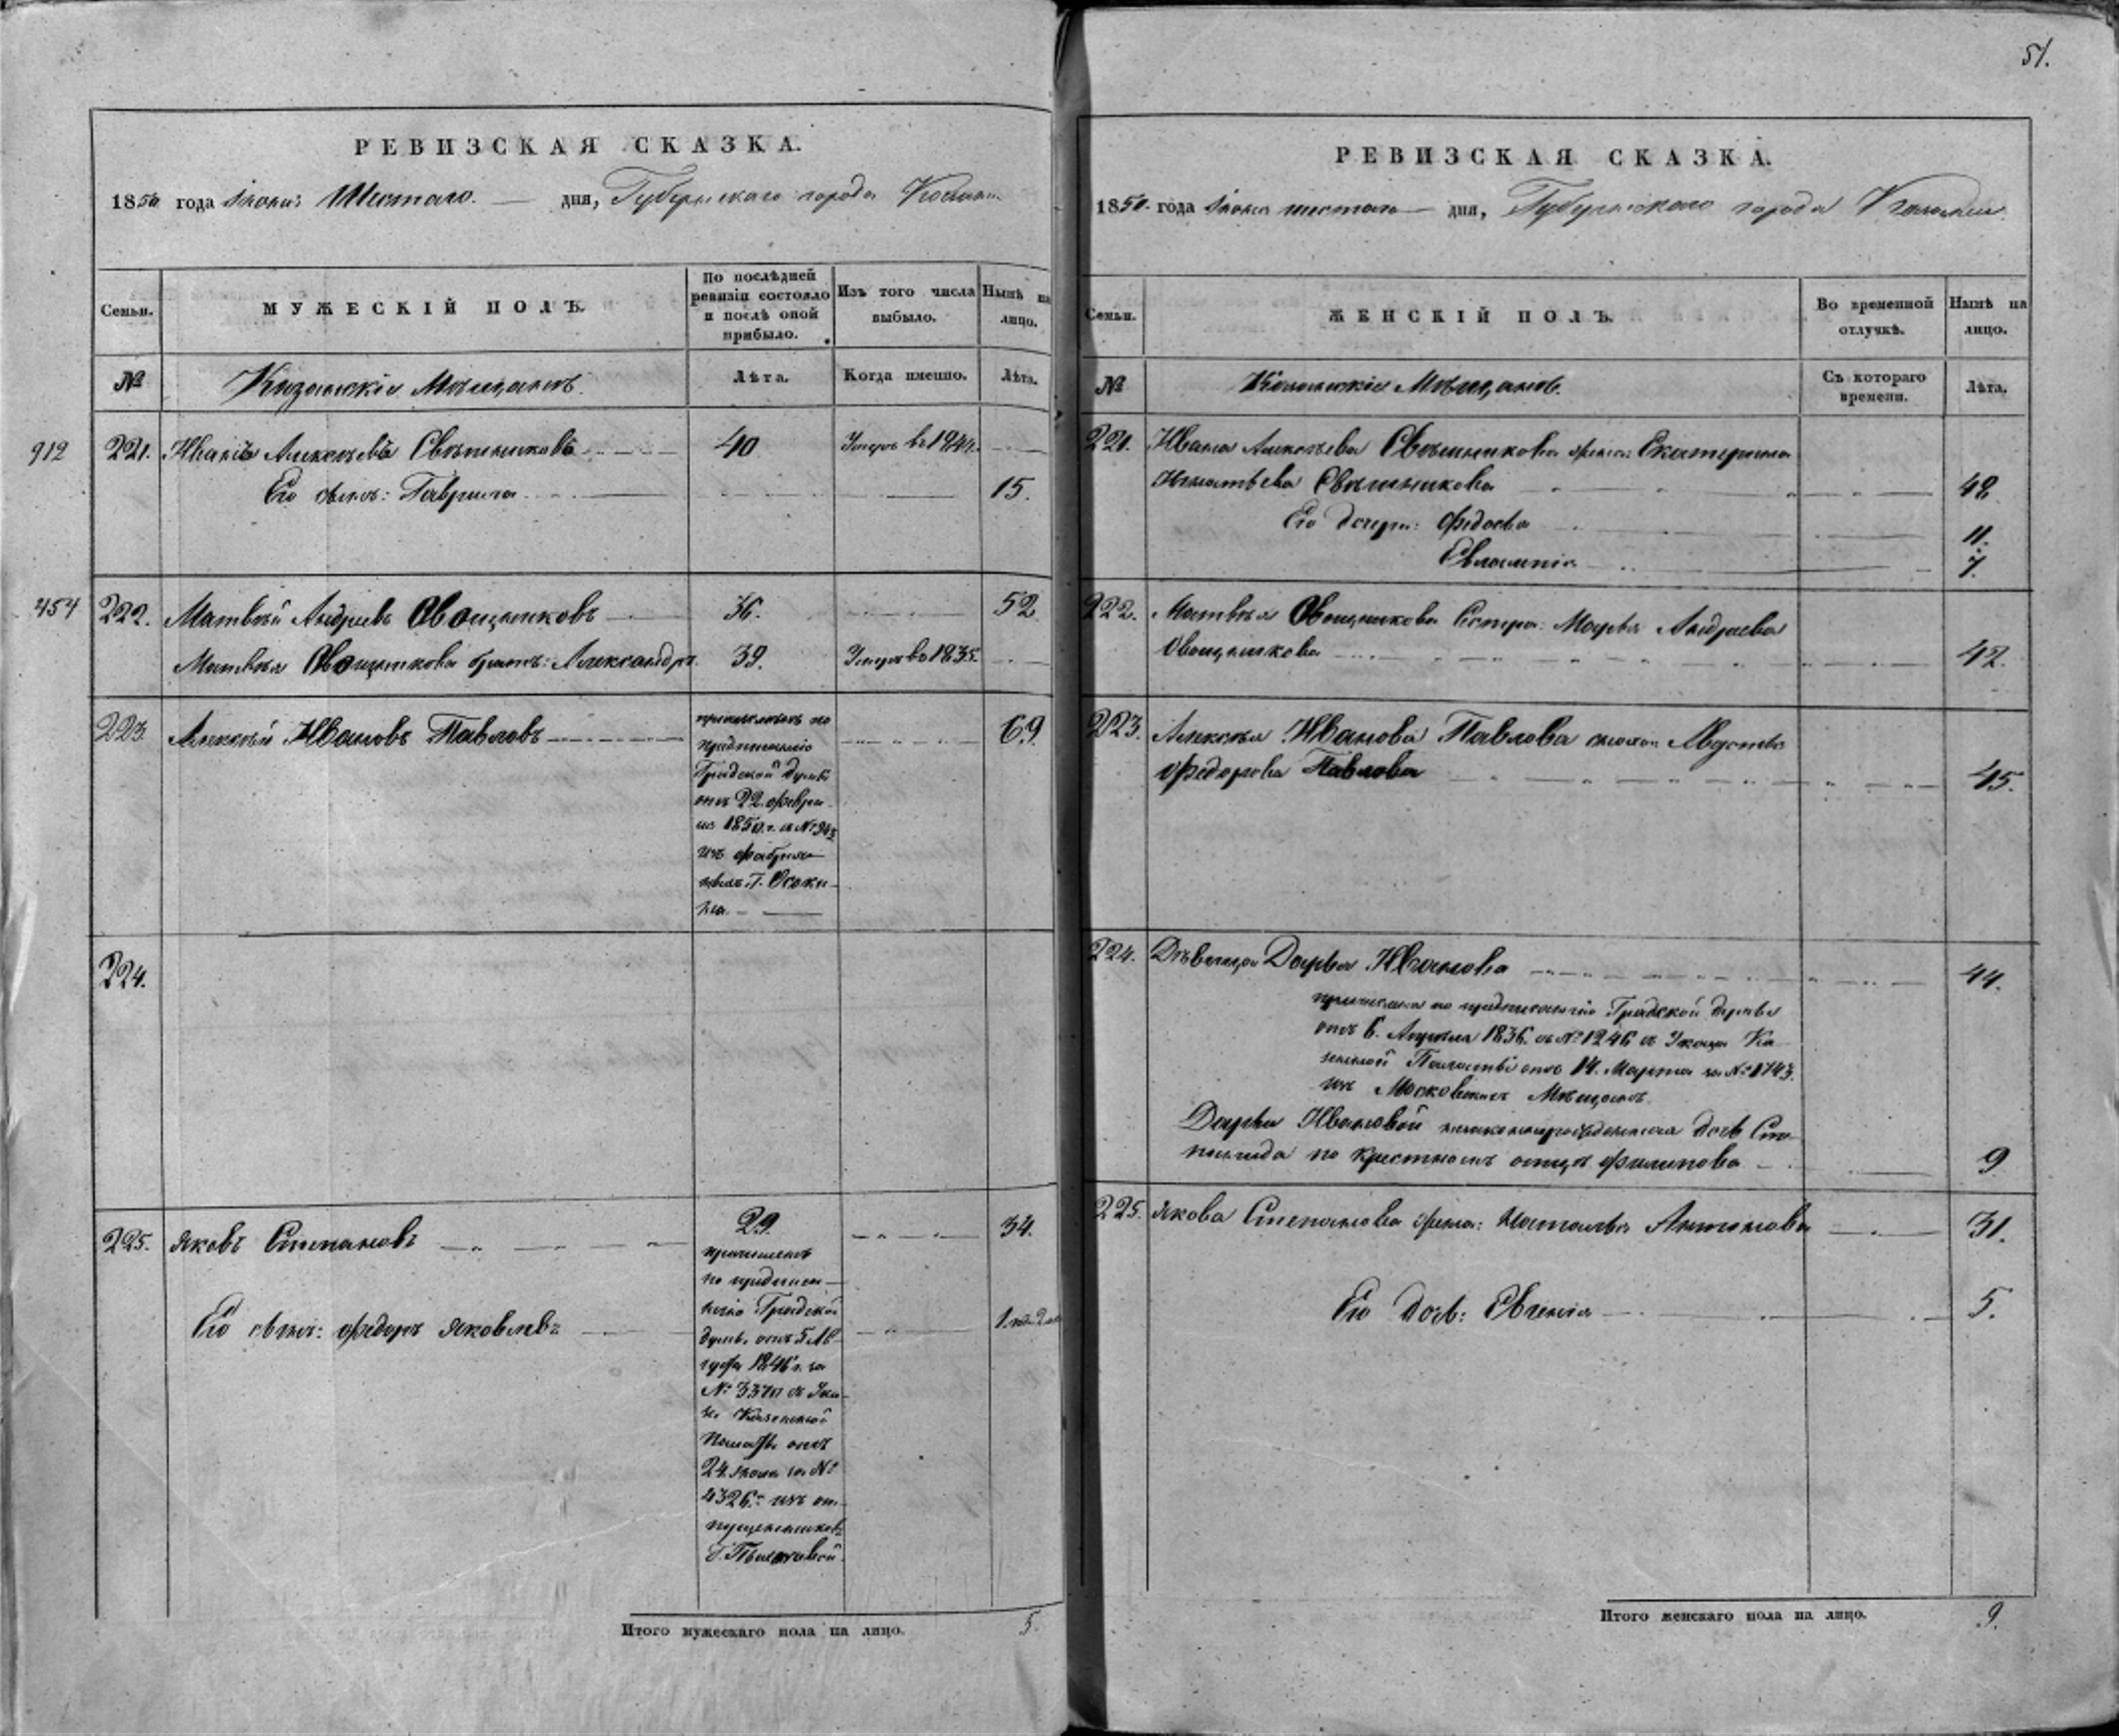 РЕВИЗСКАЯ СКАЗКА.
1850 года Iюня Шестаго дня, Губернскаго города Казани
Семьи.
МУЖЕСКІЙ ПОЛЪ.
По послѣдней ревизіи состояло и послѣ оной прибыло.
Изъ того числа выбыло.
Нынѣ на лицо.
№
Казанскіе Мѣщане.
Лѣта.
Когда именно.
Лѣта.
912
221. Иванъ Алексѣевъ Свѣшниковъ 40 Умеръ въ 1844.
Его сынъ: Гаврила 15.
454
222. Матвѣй Андреевъ Овощниковъ 36. 52
Матвѣя Овощникова братъ: Александръ 39. Умеръ въ 1835.
223. Алексѣй Ивановъ Павловъ 69
причисленъ по
предписанію
Градской Думы
отъ 22 Февра-
ля 1850 г. за №
изъ фабрич-
ныхъ Г. Осоки-
на.
224.
225. Яковъ Степановъ 29. 34.
причисленъ
по предписа-
нію Градской
думы, отъ 5 Ав-
густа 1846 г. за
№ 3370 и Ука-
зу Казенной
Палаты отъ
24 Iюля за №
4326. изъ от-
пущенниковъ
Г.
Его сынъ: Федоръ Яковлевъ
Итого мужескаго пола на лицо. 5.
51.
РЕВИЗСКАЯ СКАЗКА.
1850 года Iюня шестаго дня, Губернскаго города Казани
Семьи.
ЖЕНСКІЙ ПОЛЪ.
Во временной отлучкѣ.
Нынѣ на лицо.
№
Казанскіе Мѣщане.
Съ котораго времени.
Лѣта.
221. Ивана Алексѣева Свѣшникова жена: Екатерина
Игнатьева Свѣшникова 42
Его дочери: Федосья 11.
Евлампія 7.
222. Матвѣя Овощникова Сестра: Марья Андреева
Овощникова 42.
223. Алексѣя Иванова Павлова жена: Авдотья
Федорова Павлова 45.
224. Дѣвица Дарья Иванова 44.
причислена по предписанію Градской думы
отъ 6. Апрѣля 1836. за № 1246 и Указу Ка-
зенной Палаты отъ 14. Марта за № 1743.
изъ Московскихъ Мѣщанъ.
Дарьи Ивановой незаконнорожденная дочь Сте-
панида по крестномъ отцѣ Филипова 9
225. Якова Степанова жена: Наталья Антонова 31.
Его дочь: Евгенія 5.
Итого женскаго пола на лицо. 9.